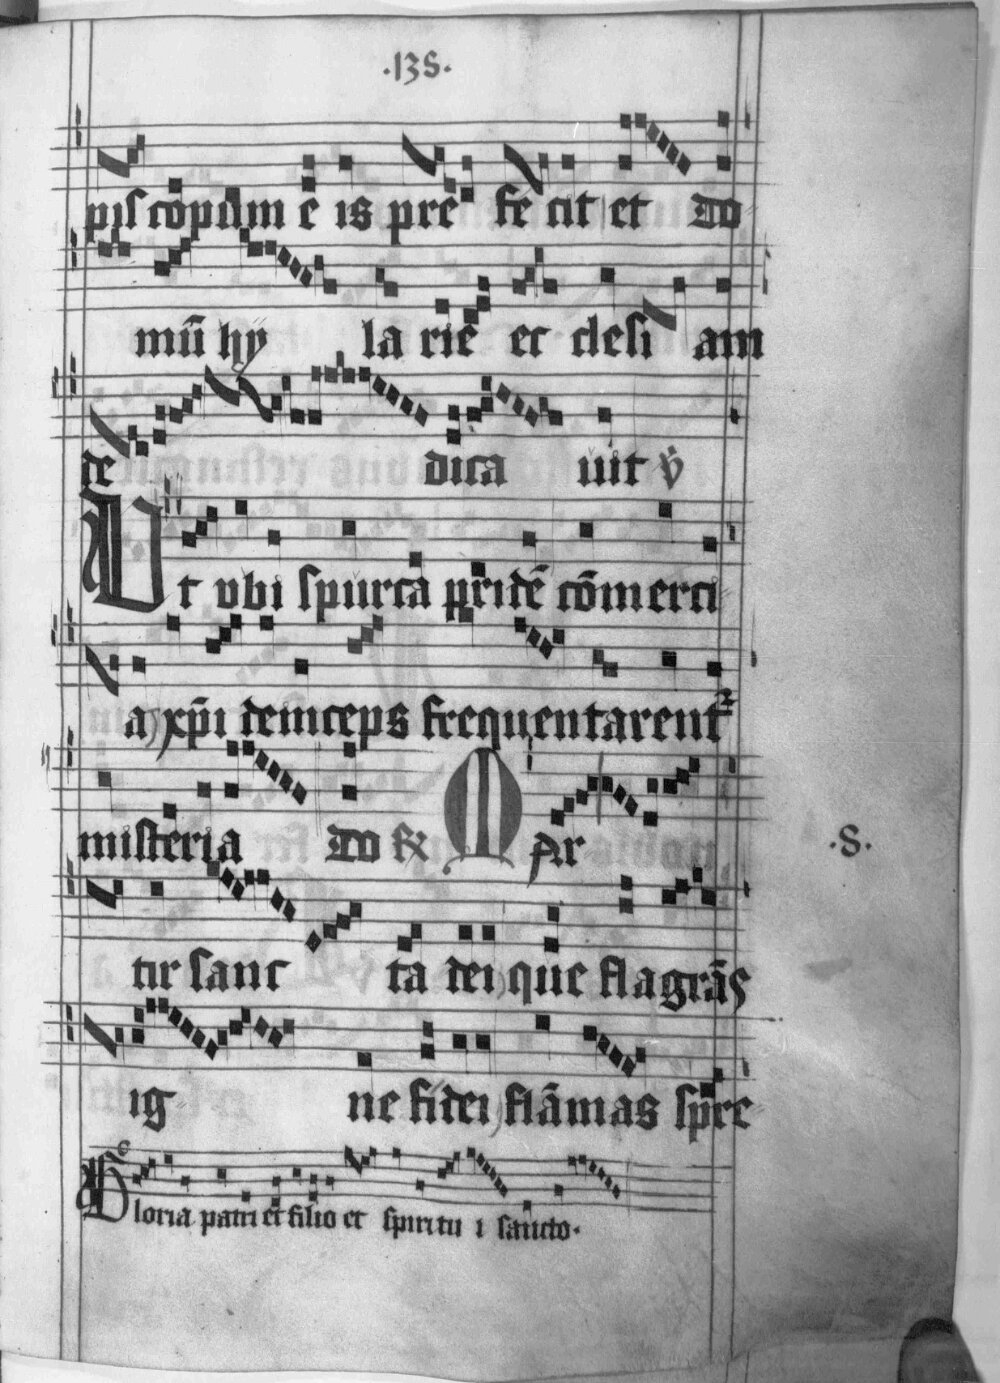 .138.
piscopūm e is pre fe cit et do
mū hy la rie et desi am
de dica uit ℣
Ut vbi spurca pridē cōmerci
a xp̄i deinceps frequentarent᷑
misteria Do ℟ Mar
tir sanc ta dei que flagrās
.S.
ig ne fidei flāmas spre
Gloria patri et filio et spiritu i sancto.